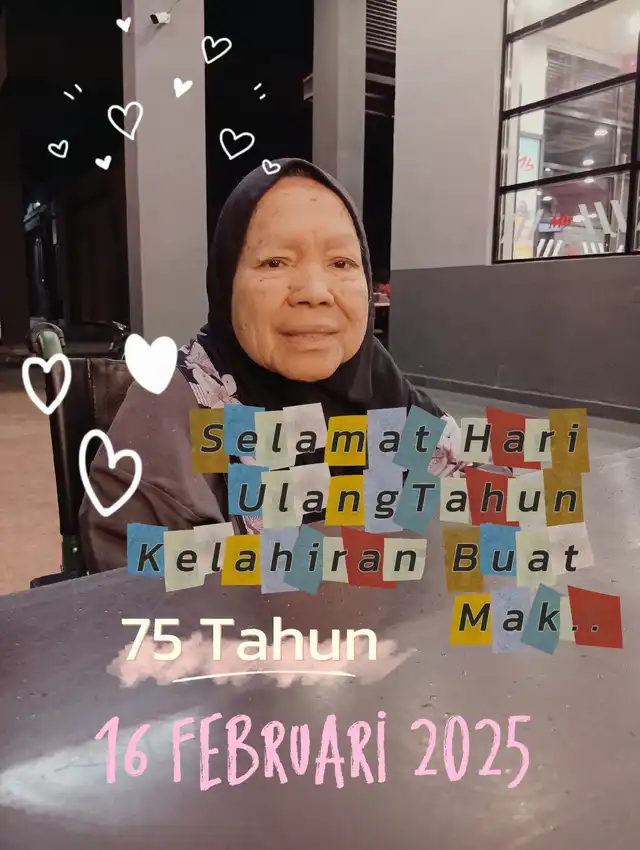 Selamat Hari
UlangTahun
Kelahiran Buat
Mak..
75 Tahun
16 FEBRUARI 2025